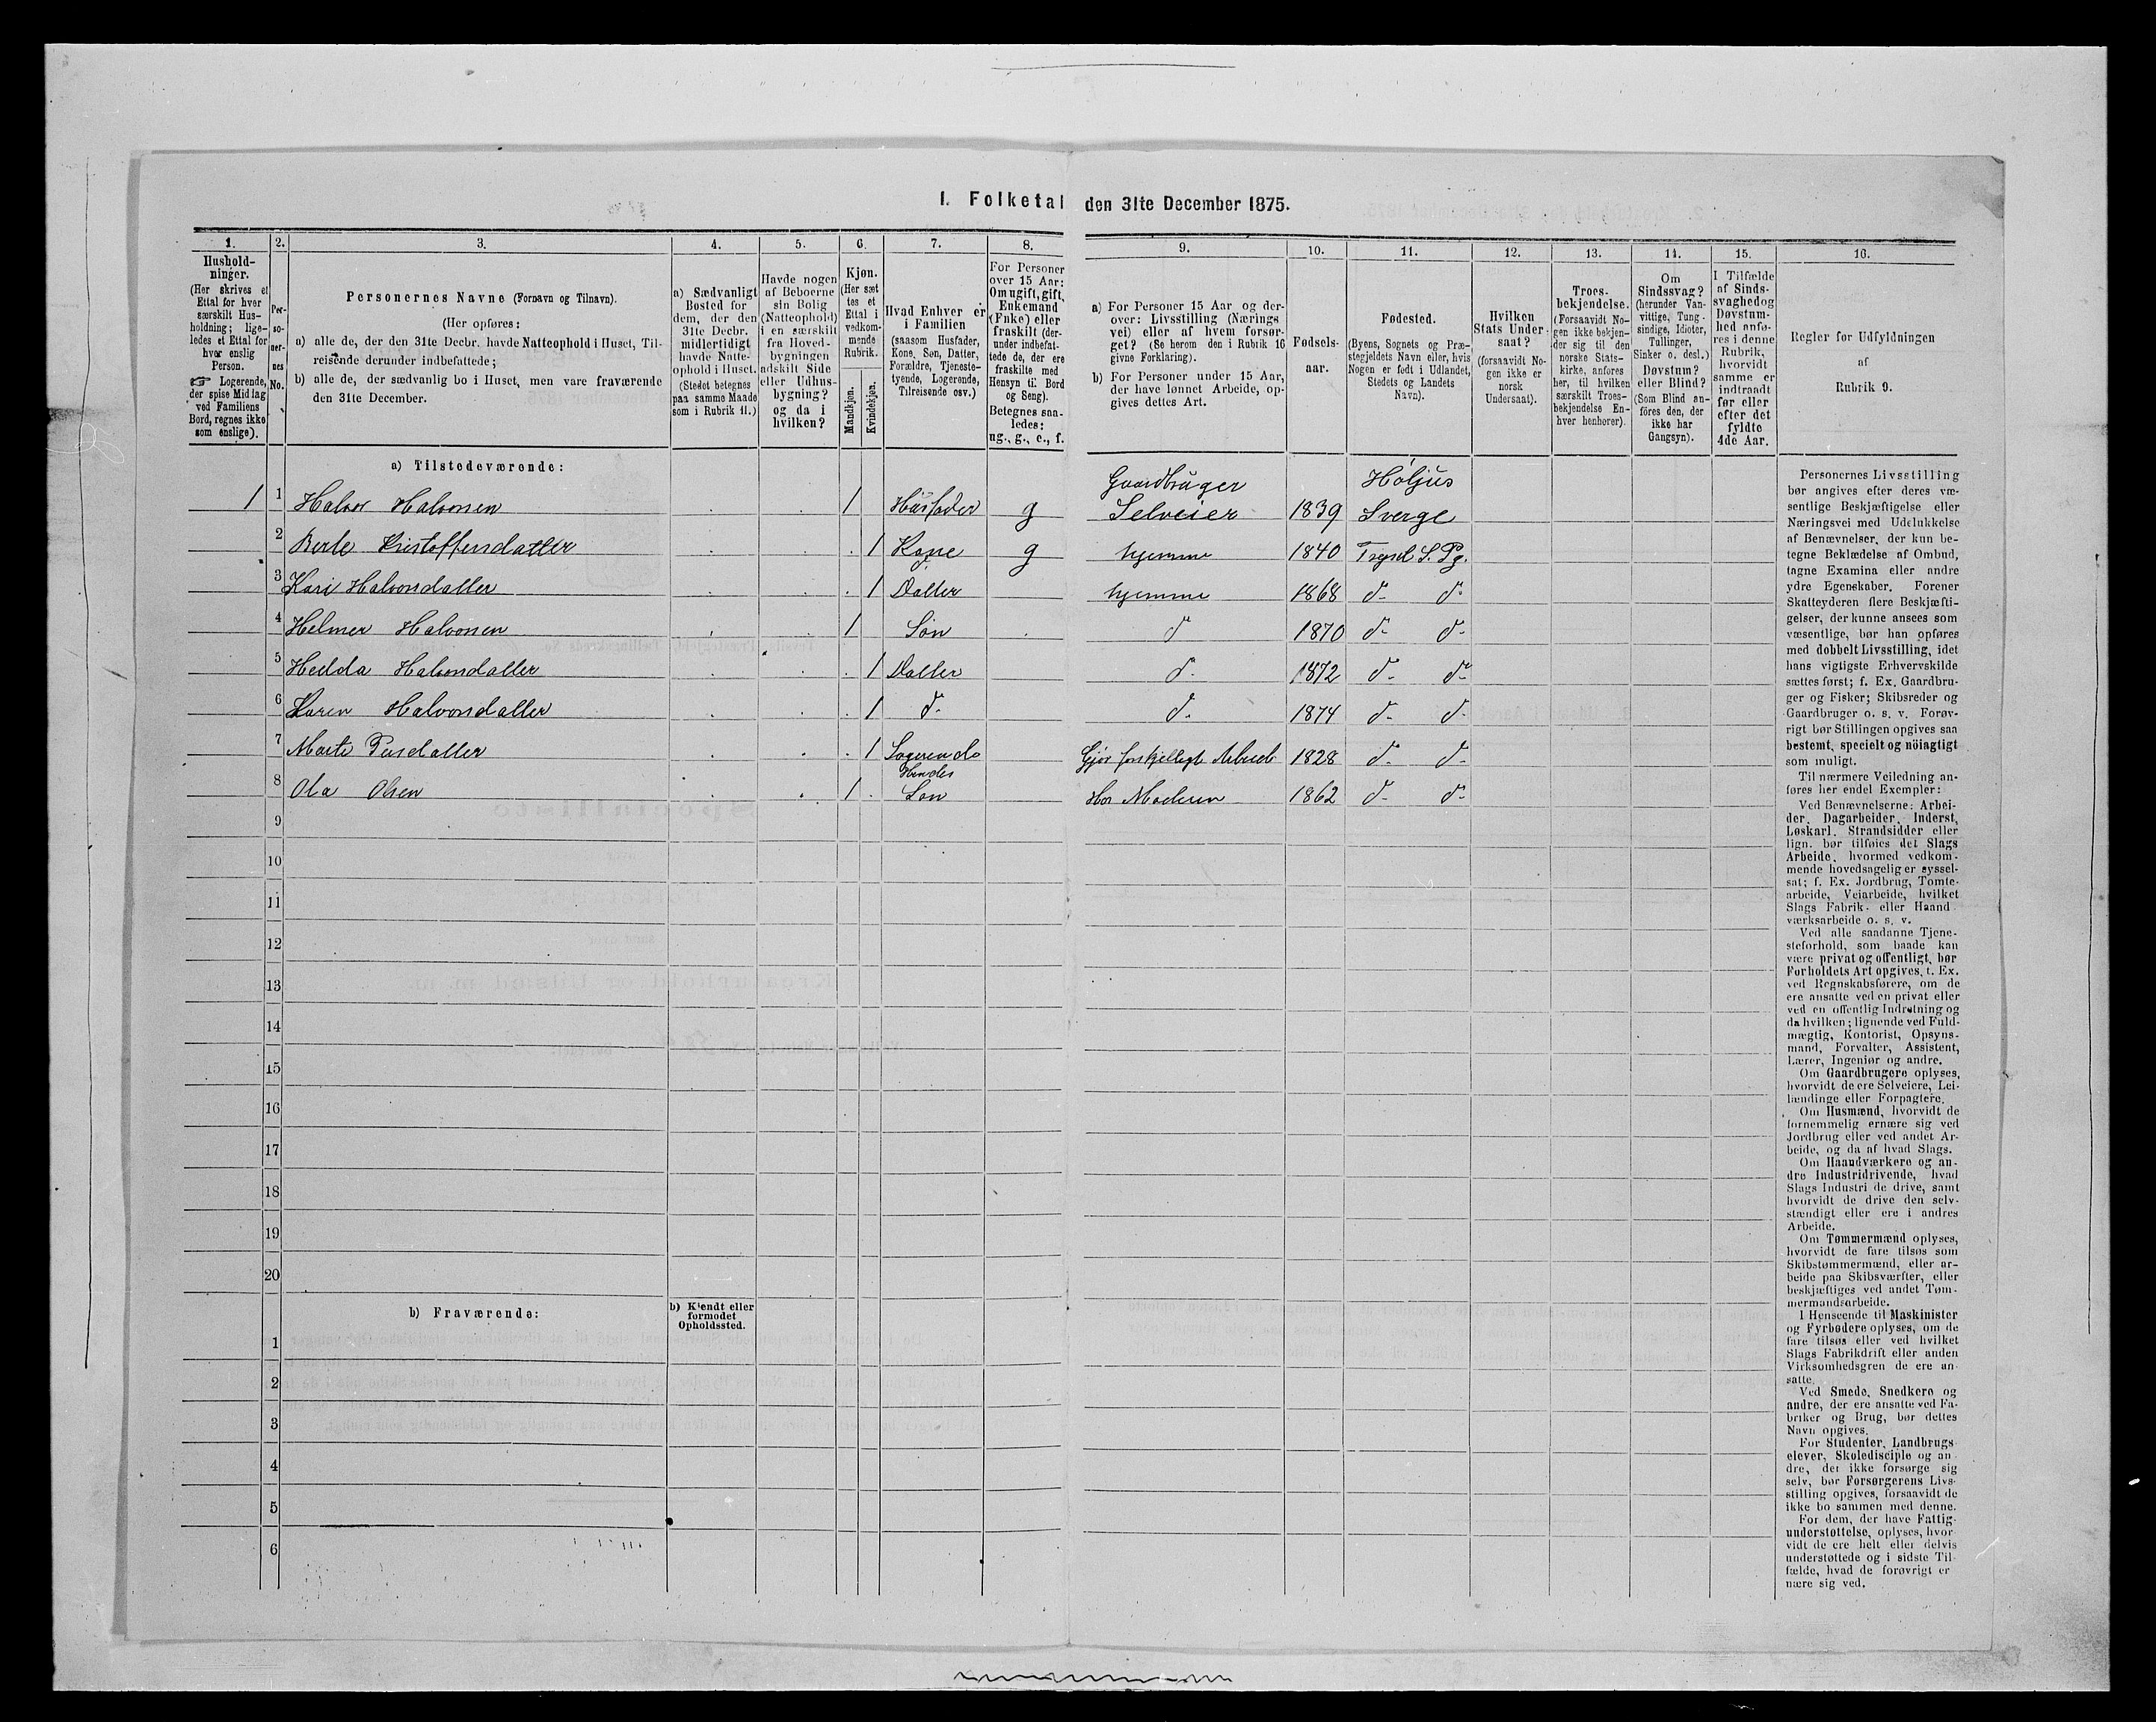 I. Folketal den 31te December 1875.
1.
Hushold-
ninger.
(Her skrives et
Ettal for hver
særskilt Hus-
holdning; lige-
ledes et Ettal for
hver enslig
Person.
☞ Logerende,
der spise Midlag
ved Familiens
Bord, regnes ikke
som enslige).
2.
Per-
so-
ner-
nes
No.
3.
Personernes Navne (Fornavn og Tilnavn).
(Her opføres:
a) alle de, der den 31te Decbr. havde Natteophold i Huset, Til-
reisende derunder indbefattede;
b) alle de, der sædvanlig bo i Huset, men vare fraværende
den 31te December.
4.
a) Sædvanligt
Bosted for
dem, der den
31te Decbr.
midlertidigt
havde Natte-
ophold i Huset.
(Stedet betegnes
paa samme Maade
som i Rubrik 11.)
5.
Havde nogen
af Beboerne
sin Bolig
(Natteophold)
i en særskilt
fra Hoved-
bygningen
adskilt Side
eller Udhus-
bygning?
og da i
hvilken?
6.
Kjøn.
(Her sæt
tes et
Ettal i
vedkom-
mende
Rubrik.
Mandkjøn.
Kvindekjøn.
7.
Hvad Enhver er
i Familien
(saasom Husfader,
Kone, Søn, Datter,
Forældre, Tjeneste-
tyende, Logerende,
Tilreisende osv.)
8.
For Personer
over 15 Aar:
Om ugift, gift,
Enkemand
(Enke) eller
fraskilt (der-
under indbefat-
tede de, der ere
fraskilte med
Hensyn til Bord
og Seng).
Betegnes saa-
ledes:
ug., g., e., f.
9.
a) For Personer 15 Aar og der-
over: Livsstilling (Nærings
vei) eller af hvem forsør-
get? (Se herom den i Rubrik 16
givne Forklaring).
b) For Personer under 15 Aar,
der have lønnet Arbeide, op-
gives dettes Art.
10.
Fødsels-
aar.
11.
Fødested.
(Byens, Sognets og Præ-
stegjeldets Navn eller, hvis
Nogen er født i Udlandet,
Stedets og Landets
Navn).
12.
Hvilken
Stats Under-
saat?
(forsaavidt No-
gen ikke er
norsk
Undersaat).
13.
Troes-
bekjendelse.
(Forsaavidt No-
gen ikke bekjen-
der sig til den
norske Stats-
kirke, anføres
her, til hvilken
særskilt Troes-
bekjendelse En-
hver henhører).
14.
Om
Sindssvag?
(herunder Van-
vittige, Tung-
sindige, Idioter,
Tullinger,
Sinker o. desl.)
Døvstum?
eller Blind?
(Som Blind an-
føres den, der
ikke har
Gangsyn).
15.
I Tilfælde
af Sinds-
svaghed og
Døvstum-
hed anfø-
res i denne
Rubrik,
hvorvidt
samme er
indtraadt
før eller
efter det
fyldte
4de Aar.
16.
Regler for Udfyldningen
af
Rubrik 9.
a) Tilstedeværende:
1 1 Halvor Halvorsen 1 Husfader g Gaardbruger Selveier 1839 Höljus Sverge
2 Berte Kristoffersdatter 1 Kone g hjemme 1840 Trysil S. Pg.
3 Kari Halvorsdatter 1 Datter hjemme 1868 d- d-
4 Helmer Halvorsen 1 Søn d 1870 d- d-
5 Hedda Halvorsdatter 1 Datter d- 1872 d- d-
6 Karen Halvorsdatter 1 d- d- 1874 d- d-
7 Marte Persdatter 1 Logerende Gjør forskjelligt Arbeide 1828 d- d-
8 Ola Olsen 1 Hendes Søn Hos Moderen 1862 d- d-
9
10
11
12
13
14
15
16
17
18
19
20
b) Fraværende:
b) Kjendt eller
formodet
Opholdssted.
1
2
3
4
5
6
Personernes Livsstilling
bør angives efter deres væ-
sentlige Beskjæftigelse eller
Næringsvei med Udelukkelse
af Benævnelser, der kun be-
tegne Beklædelse af Ombud,
tagne Examina eller andre
ydre Egenskaber. Forener
Skatteyderen flere Beskjæfti-
gelser, der kunne ansees som
væsentlige, bør han opføres
med dobbelt Livsstilling, idet
hans vigtigste Erhvervskilde
sættes først; f. Ex. Gaardbru-
ger og Fisker; Skibsreder og
Gaardbruger o. s. v. Forøv-
rigt bør Stillingen opgives saa
bestemt, specielt og nöiagtigt
som muligt.
Til nærmere Veiledning an-
føres her endel Exempler:
Ved Benævnelserne: Arbei-
der, Dagarbeider, Inderst,
Løskarl, Strandsidder eller
lign. bør tilføies det Slags
Arbeide, hvormed vedkom-
mende hovedsagelig er syssel-
sat; f. Ex. Jordbrug, Tomte-
arbeide, Veiarbeide, hvilket
Slags Fabrik- eller Haand-
værksarbeide o. s. v.
Ved alle saadanne Tjene-
steforhold, som baade kan
være privat og offentligt, bør
Forholdets Art opgives, t. Ex.
ved Regnskabsførere, om de
ere ansatte ved en privat eller
ved en offentlig Indretning og
da hvilken; lignende ved Fuld-
mægtig, Kontorist, Opsyns-
mand, Forvalter, Assistent,
Lærer, Ingeniør og andre.
Om Gaardbrugere oplyses,
hvorvidt de ere Selveiere, Lei-
lændinge eller Forpagtere.
Om Husmænd, hvorvidt de
fornemmelig ernære sig ved
Jordbrug eller ved andet Ar-
beide, og da af hvad Slags.
Om Haandværkere og an-
dre Industridrivende, hvad
Slags Industri de drive, samt
hvorvidt de drive den selv-
stændigt eller ere i andres
Arbeide.
Om Tømmermænd oplyses,
hvorvidt de fare tilsøs som
Skibstømmermænd, eller ar-
beide paa Skibsværfter, eller
beskjæftiges ved andet Tøm-
mermandsarbeide.
I Henseende til Maskinister
og Fyrbødere oplyses, om de
fare tilsøs eller ved hvilket
Slags Fabrikdrift eller anden
Virksomhedsgren de ere an-
satte.
Ved Smede, Snedkere og
andre, der ere ansatte ved Fa-
briker og Brug, bør dettes
Navn opgives.
For Studenter, Landbrugs-
elever, Skoledisciple og an-
dre, der ikke forsørge sig
selv, bør Forsørgerens Livs-
stilling opgives, forsaavidt de
ikke bo sammen med denne.
For dem, der have Fattig-
understøttelse, oplyses, hvor-
vidt de ere helt eller delvis
understøttede og i sidste Til-
fælde, hvad de forøvrigt er
nære sig ved.